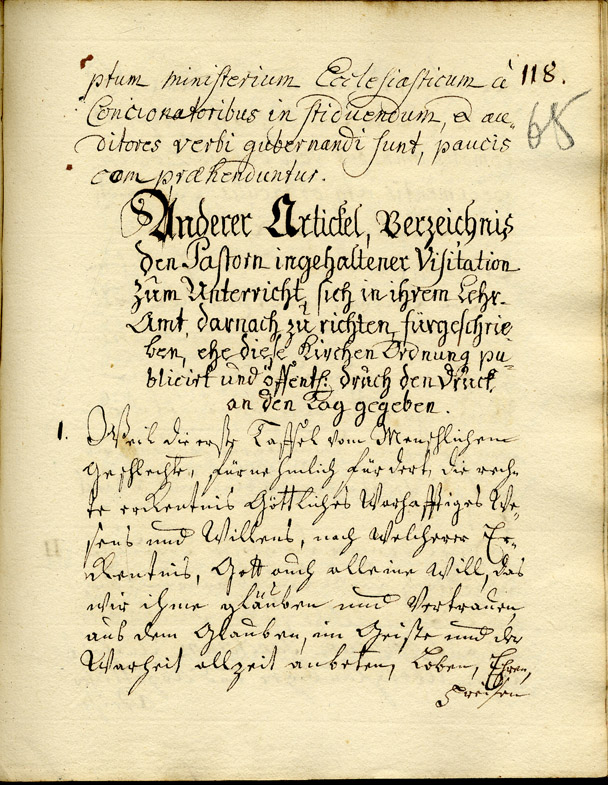 ptum ministerium Ecclesiasticum à 118.
Concionatoribus in stiduendum, & au= 68
ditores verbi gubernandi sunt, paucis
com præhenduntur.
Anderer Artickel, Verzeichnis
den Pastorn ingehaltener Visitation
zum Unterricht, sich in ihrem Lehr-
Amt, darnach zu richten, fürgeschrie
ben, ehe diese Kirchen Ordnung pu=
blicirt und öffentl: druch den Druck,
an den Tag gegeben.
1. Weil die erste Taffel vom Menschlichem
Geschlechte, fürnehmlich fürdert, die rech-
te erckentnis Göttliches Warhafftiges We=
sens und Willens, nach Welcherer Er=
ckentnis, Gott auch alleine Will, das
wir ihme gläuben und Vertrauen,
aus dem Glauben, im Geiste und der
Warheit allzeit anbeten, Loben, Ehren,
Preisen